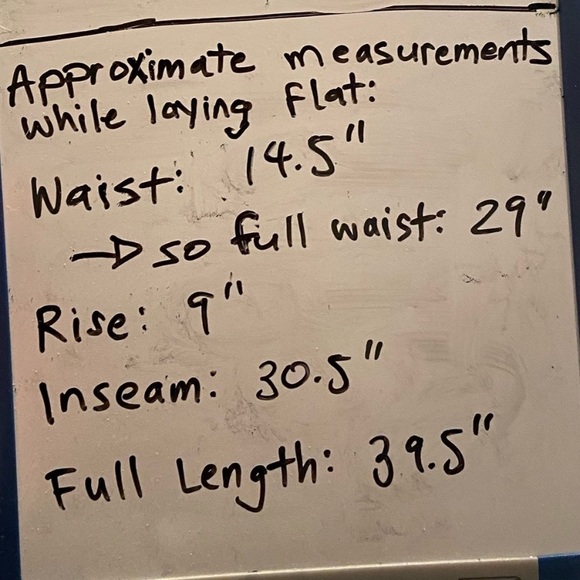 Approximate measurements
while laying flat:
Waist: 14.5"
→ so full waist: 29"
Rise: 9"
Inseam: 30.5"
Full Length: 39.5"